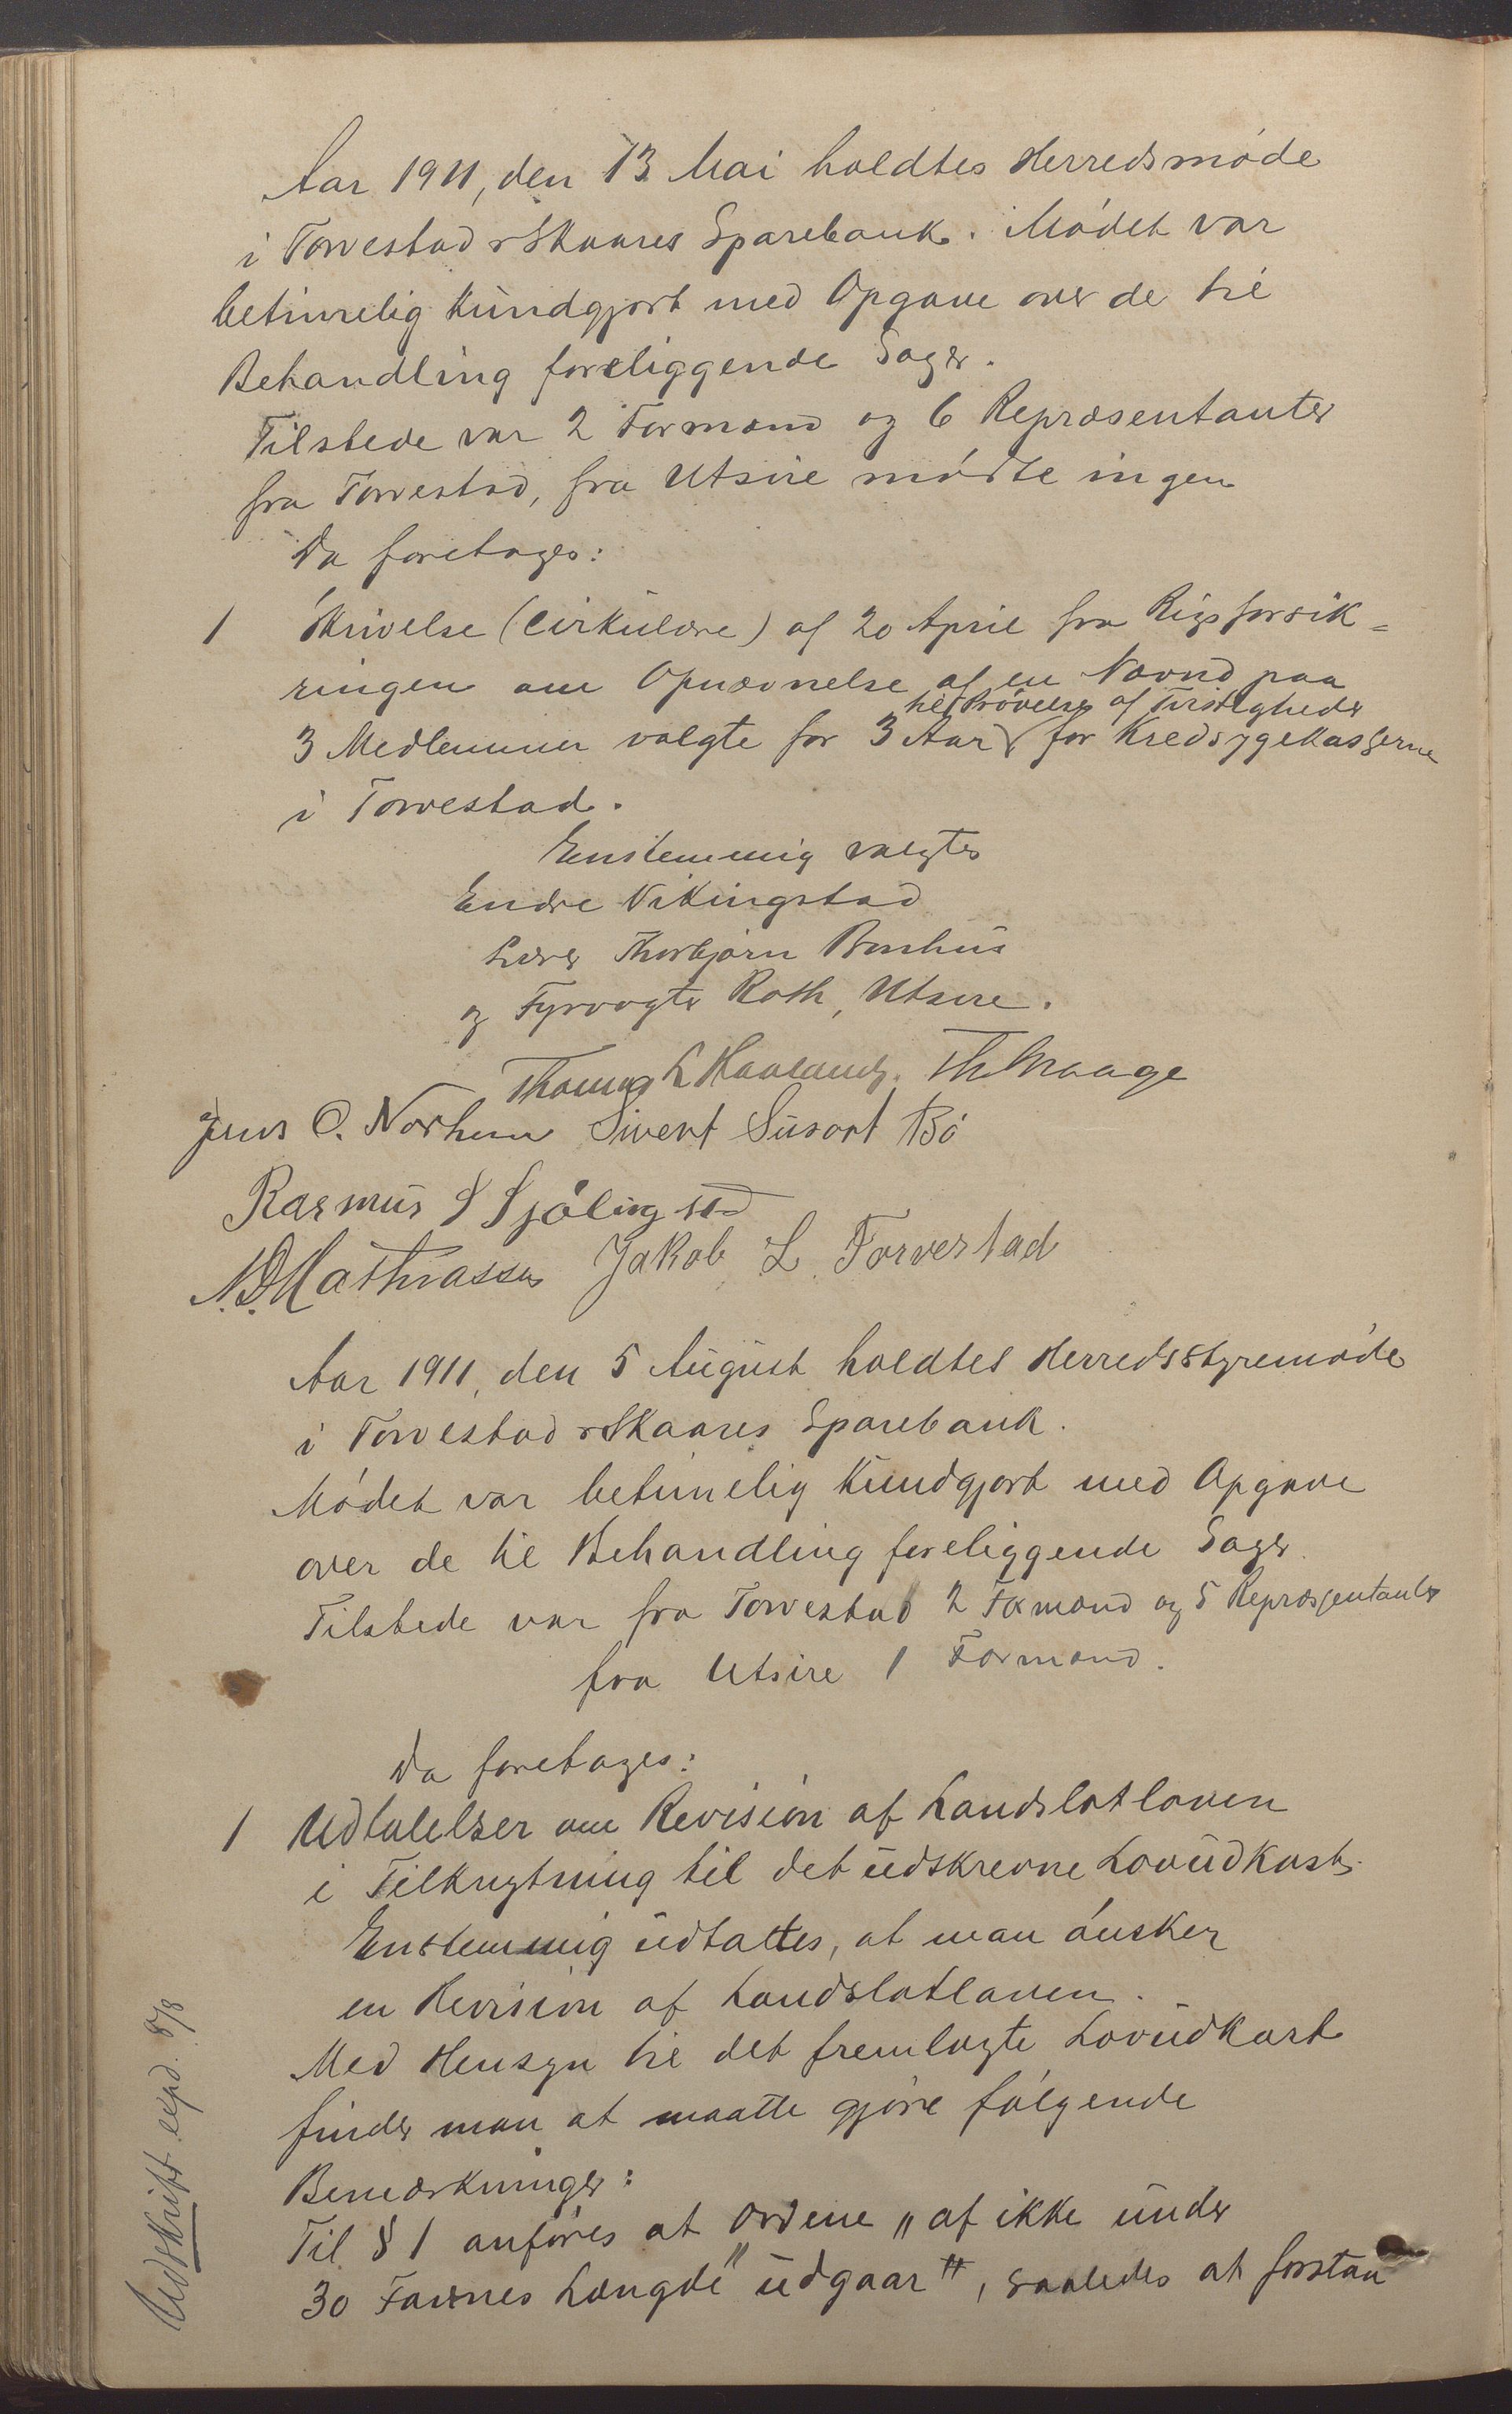 Aar 1911, den 13 Mai holdtes Herredsmøde
i Torvestad & Skaares Sparebank. Mødet var
betimelig kundgjort med Opgave over de til
Behandling foreliggende Sager.
Tilstede var 2 Formænd og 6 Repræsentanter
fra Torvestad, fra Utsire mødte ingen
Da foretages:
1 Skrivelse (Cirkulære) af 20 April fra Rigsforsik=
ringen om Opnævnelse af en Nævnd paa
til Prøvelse af Tvistigheder
3 Medlemmer valgte for 3 Aar for Kredssygekasserne
i Torvestad.
Enstemmig valgtes
Endre Vikingstad
Lærer Thorbjørn Bonhus
og Fyrvogter Roth, Utsire.
Thomas L Haaland. Th Waage
Jens C. Norheim Sivert Susort Bø
Rasmus S Sjølingstad
N.D. Mathiassen Jakob L. Torvestad
Aar 1911, den 5 August holdtes Herredsstyremøde
i Torvestad & Skaares Sparebank.
Mødet var betimelig kundgjort med Opgave
over de til Behandling foreliggende Sager.
Tilstede var fra Torvestad 2 Formænd og 5 Repræsentanter
fra Utsire 1 Formand.
Da foretages:
1 Udtalelser om Revision af Landslotloven
i Tilknytning til det udskrevne Lovudkast.
Enstemmig udtaltes, at man ønsker
en Revision af Landslotloven.
Med Hensyn til det fremlagte Lovudkast
finder man at maatte gjøre følgende
Bemærkninger:
Til § 1 anføres at Ordene "af ikke under
30 Favnes Længde" udgaar", saaledes at forstaa
Udskrift exp. 8/8